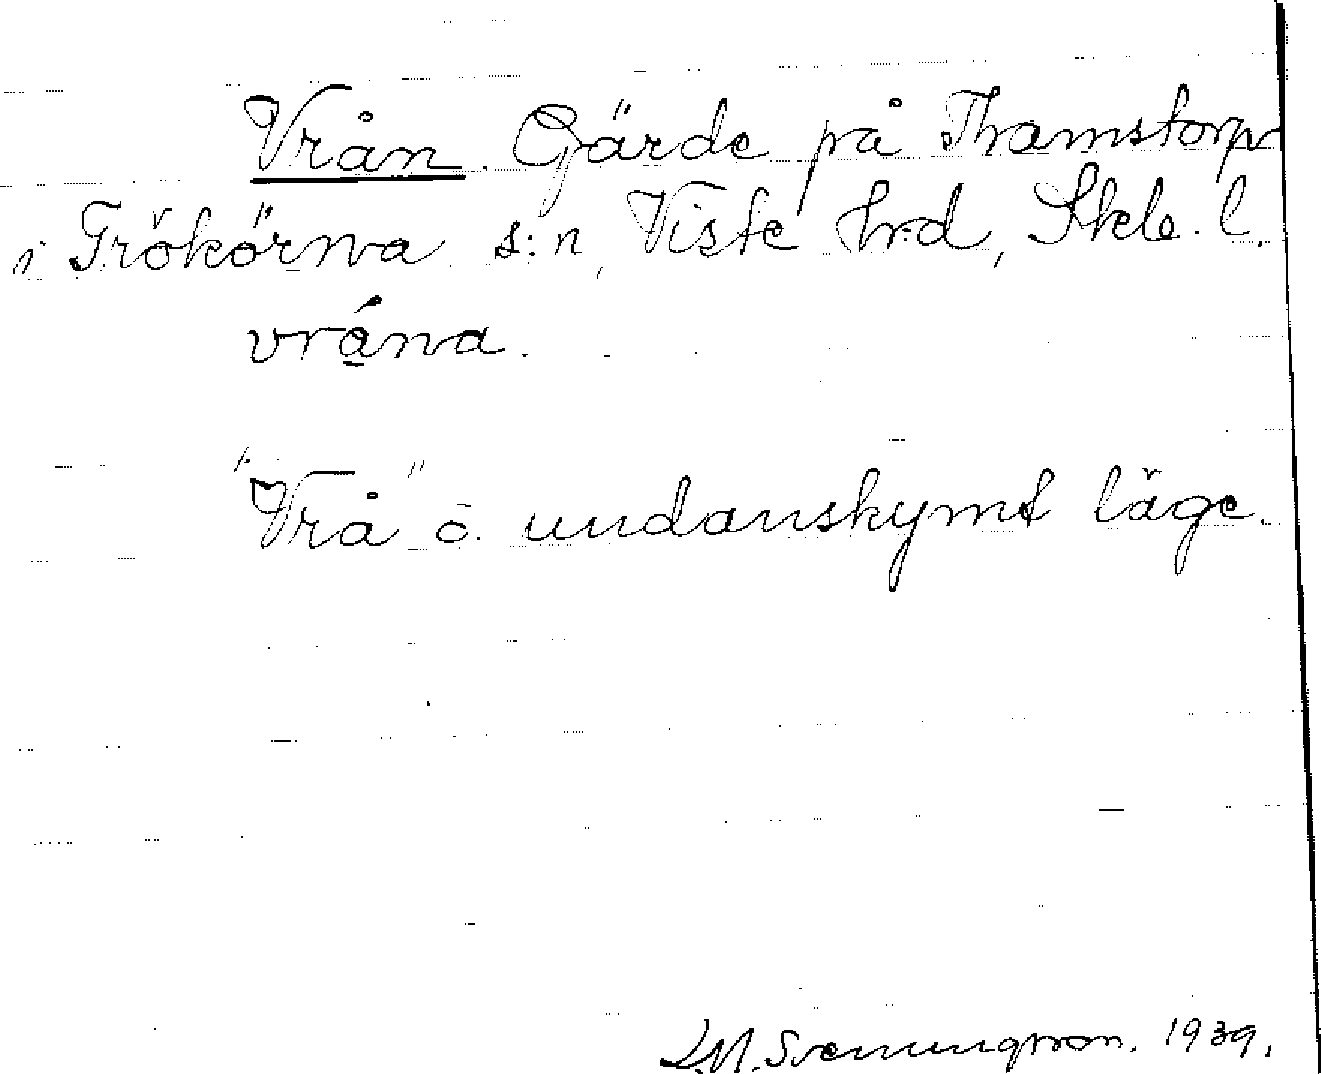 Vrån. Gärde på Thamstorp
i Frökörna s:n, Viste hrd, Skbs. l.
vrǻna.
"Vrå" o. undanskymt läge.
D.M. Svenungsson. 1939.